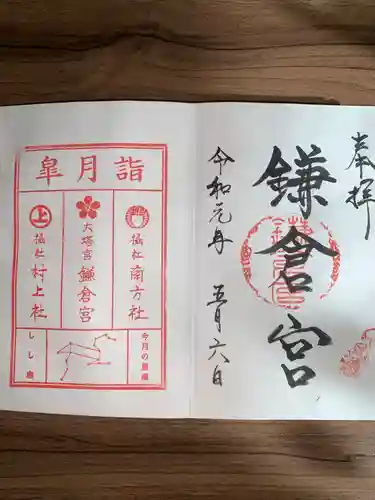 奉拝
鎌倉宮
令和元年 五月六日
皐月詣
摂社 南方社
大塔宮 鎌倉宮
上
摂社 村上社
今月の星座
しし座